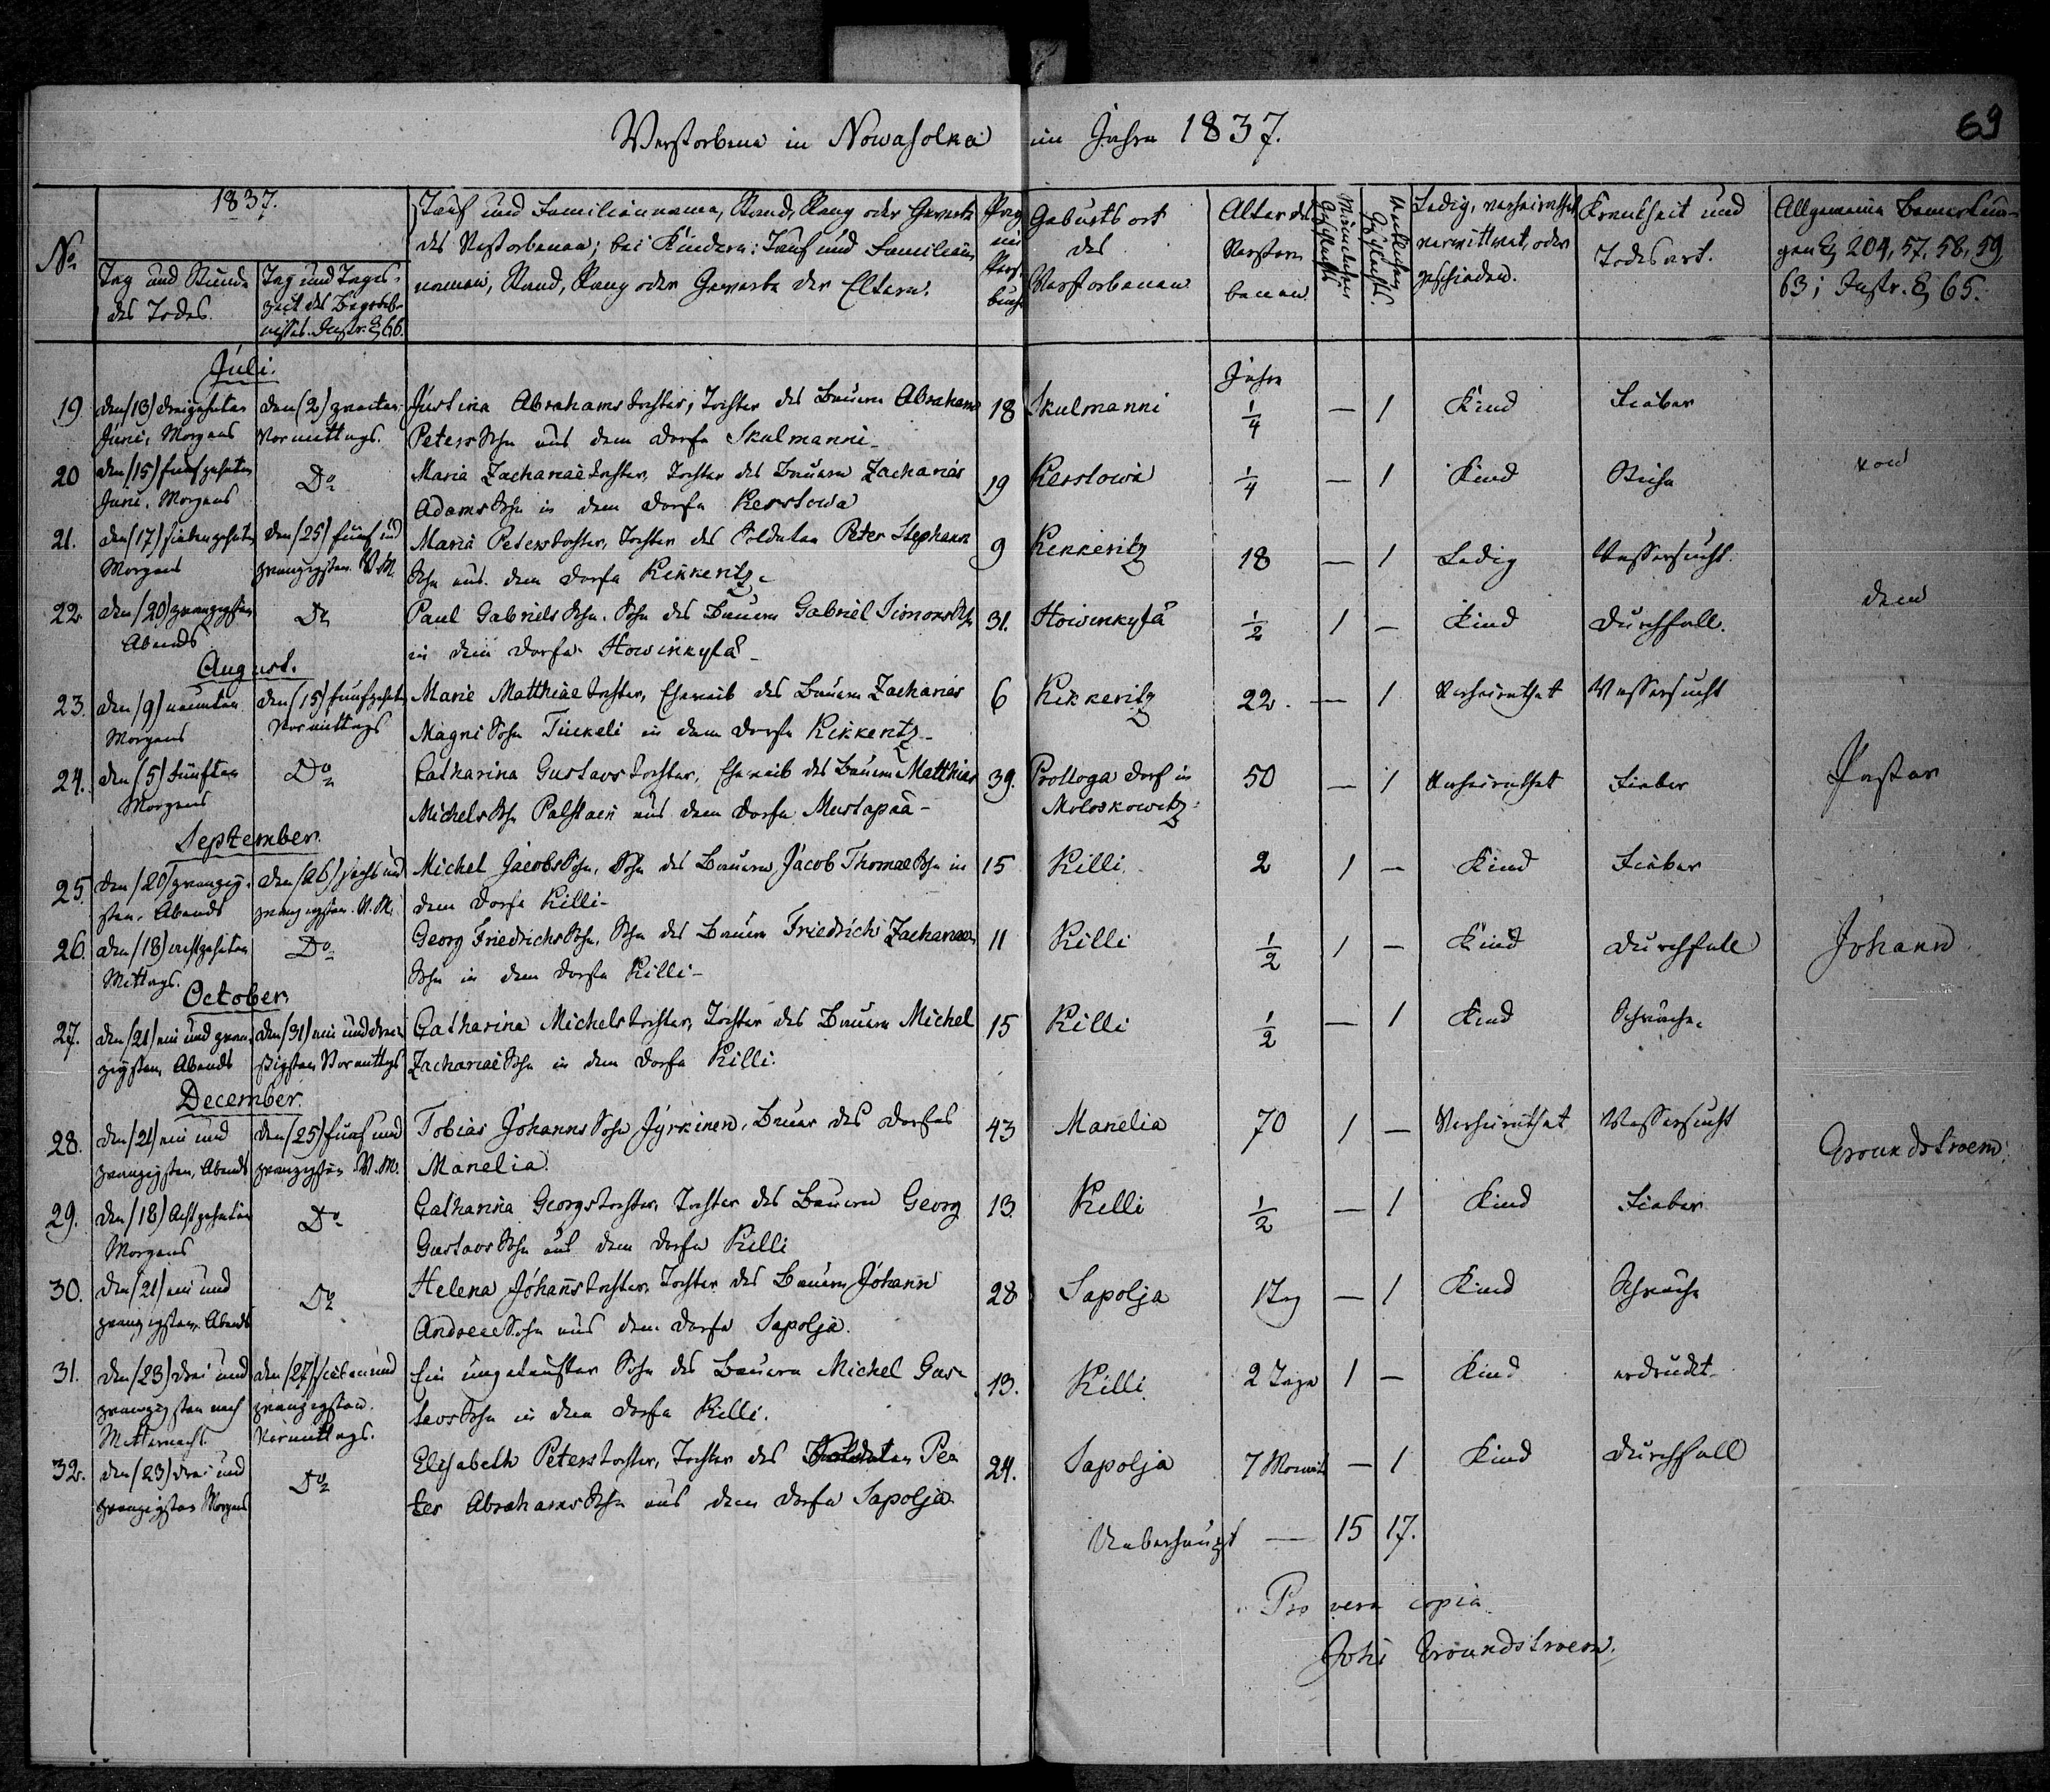 69
Verstorbene in Nowasolka im Jahre 1837.
No
1837.
Tag und Stunde des Todes.
Tag und Tageszeit des Begräbnisses. Instr. § 66.
Tauf und Familienname, Stand, Rang oder Gewerbe
des Verstorbenen; bei Kindern: Tauf und Familien
namen, Stand, Rang oder Gewerbe der Eltern.
Pag im Pers. buch
Geburtsort des Verstorbenen
Alter des Verstorbenen
Männlichen Geschlechts
Weiblichen Geschlechts.
Ledig, verheirathet, verwittwet, oder geschieden.
Krankheit und Todesart.
Allgemeine Bemerkungen § 204, 57, 58, 59, 63; Instr. § 65.
Juli.
Jahre
19. den (13) dreizehnten den (2) zweiten Justina Abrahamstochter, Tochter des Bauern Abraham 18 Skulmanni 1/4 — 1 Kind Fieber
Juni, Morgens Vormittags. Peterssohn aus dem Dorfe Skulmanni
20 den (15) fünfzehnten Do Maria Zachariaetochter, Tochter des Bauern Zacharias 19 Kerstowa 1/4 — 1 Kind Ruhr von
Juni, Morgens Adamssohn in dem Dorfe Kerstowa
21. den (17) siebenzehnten den (25) fünf und Maria Peterstochter, Tochter des Soldaten Peter Stephans 9 Kikkeritz 18 — 1 Ledig Wassersucht.
Morgens zwanzigsten V. M. Sohn aus dem Dorfe Kikkeritz.
22. den (20) zwanzigsten Do Paul Gabrielssohn, Sohn des Bauern Gabriel Simonssohn 31. Howinkylä 1/2 1 — Kind Durchfall. dem
Abends in dem Dorfe Howinkylä
August.
23. den (9) neunten den (15) fünfzehnten Marie Matthiaetochter, Eheweib des Bauern Zacharias 6 Kikkeritz 22. — 1 Verheirathet Wassersucht
Morgens Vormittags Magni Sohn Tückeli in dem Dorfe Kikkeritz
24. den (5) fünften Do Catharina Gustavstochter, Eheweib des Bauern Matthias 39. Prologa Dorf in 50 — 1 Verheirathet Fieber Pastor
Morgens Michelssohn Palstaen aus dem Dorfe Mustapää Moloskowitz
September.
25. den (20) zwanzig- den (26) sechs und Michel Jacobssohn, Sohn des Bauern Jacob Thomaesohn in 15 Killi 2 1 — Kind Fieber
sten, Abends zwanzigsten. V. M. dem Dorfe Killi
26. den (18) achtzehnten Do Georg Friedrichssohn, Sohn des Bauern Friedrich Zachariae 11 Killi 1/2 1 — Kind Durchfall Johann
Mittags. Sohn in dem Dorfe Killi
October.
27. den (21) ein und zwan- den (31) ein und drei- Catharina Michelstochter, Tochter des Bauern Michel 15 Killi 1/2 — 1 Kind Schwäche.
zigsten, Abends ßigsten Vormittags Zachariaesohn in dem Dorfe Killi.
December.
28. den (21) ein und den (25) fünf und Tobias Johannssohn Jyrkinen, Bauer des Dorfes 43 Manelia 70 1 — Verheirathet Wassersucht
zwanzigsten, Abends zwanzigsten V. M. Manelia. Groundstroem.
29. den (18) Achtzehnten Do Catharina Georgstochter, Tochter des Bauern Georg 13 Killi 1/2 — 1 Kind Fieber
Morgens Gustavssohn aus dem Dorfe Killi
30. den (21) ein und Do Helena Johannstochter, Tochter des Bauern Johann 28 Sapolja 1 Tag — 1 Kind Schwäche
zwanzigsten, Abends Andreaesohn aus dem Dorfe Sapolja.
31. den (23) drei und den (27) sieben und Ein ungetaufter Sohn des Bauern Michel Gus- 13. Killi 2 Tage 1 — Kind erdrückt
zwanzigsten nach zwanzigsten. tavssohn in dem Dorfe Killi.
Mitternacht. Vormittags.
32. den (23) drei und Do Elisabeth Peterstochter, Tochter des Soldaten Pe- 24. Sapolja 7 Monate — 1 Kind Durchfall
zwanzigsten Morgens ter Abrahamssohn aus dem Dorfe Sapolja
Ueberhaupt — 15 17.
Pro vera copia
Joh: Groundstroem.